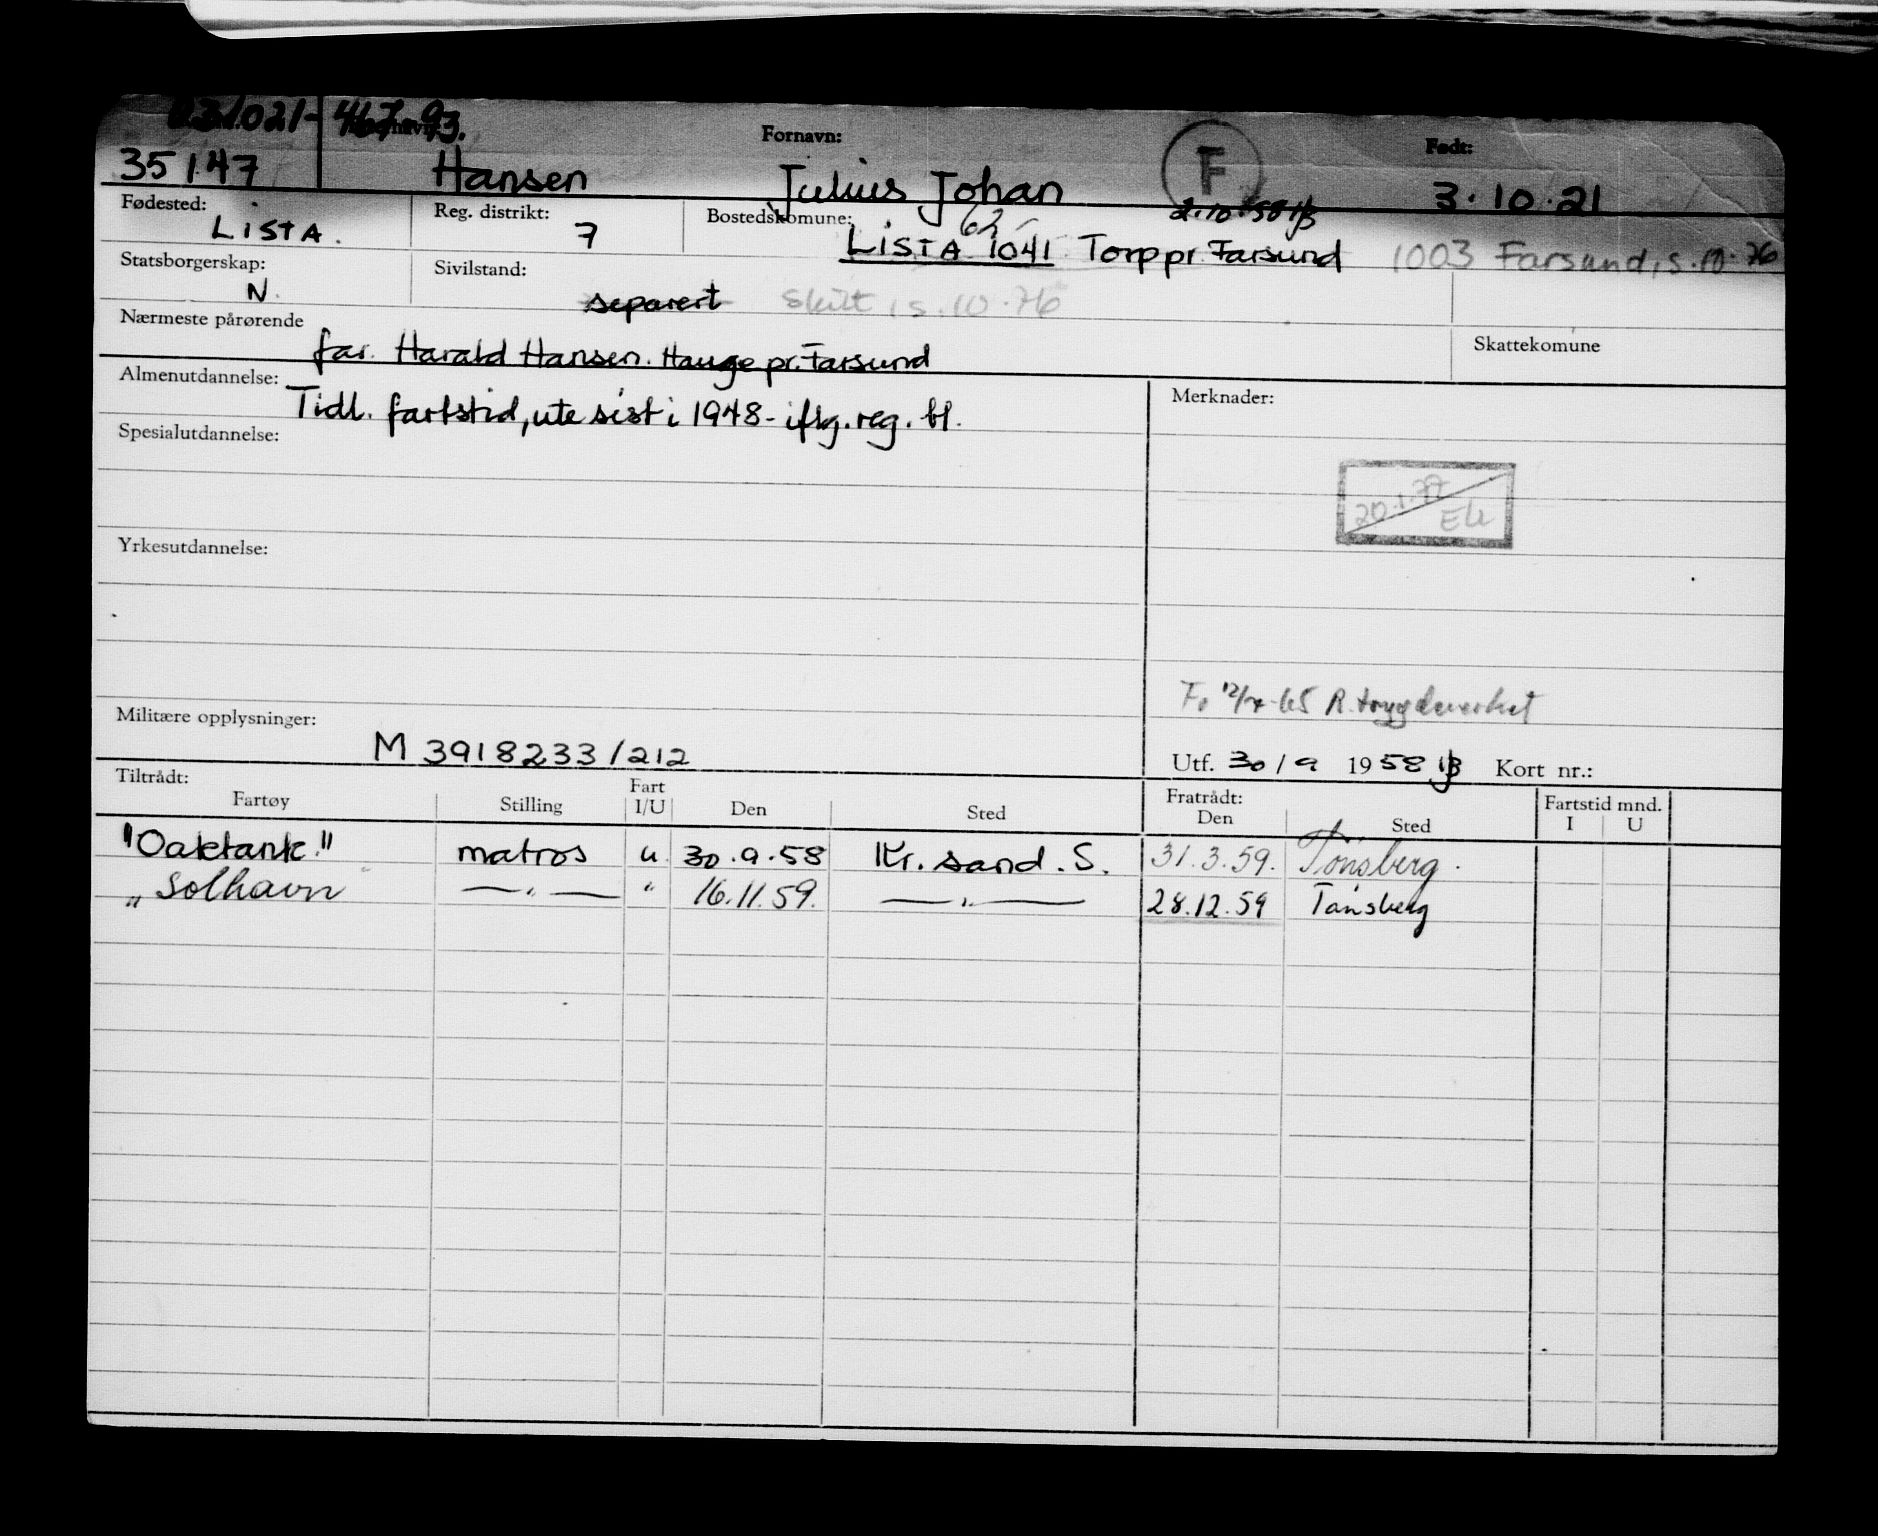 031021- 46793.
Fornavn: F Født:
35147 Hansen Julius Johan 3.10.21
Fødested: Reg. distrikt: Bostedskomune: 62 2.10.58
Lista. 7 Lista 1041 Torp pr. Farsund 1003 Farsund, s.10.76
Statsborgerskap: Sivilstand:
N. separert Skilt, s.10.76
Nærmeste pårørende Skattekomune
far. Harald Hansen. Hauge pr. Farsund
Almenutdannelse: Merknader:
Tidl. fartstid, ute sist i 1948- iflg. reg. bl.
Spesialutdannelse:
20.1.77
Yrkesutdannelse:
R.trygdeverket
Militære opplysninger:
M 3918233/212 Utf. 30/9 1958 Kort nr.:
Tiltrådt: Fart Fratrådt: Fartstid mnd.
Fartøy Stilling I/U Den Sted Den Sted I U
"Oaktank." matros u. 30.9.58 Kr.sand.S. 31.3.59. Tønsberg.
" Solhavn —"— " 16.11.59. —"— 28.12.59 Tønsberg